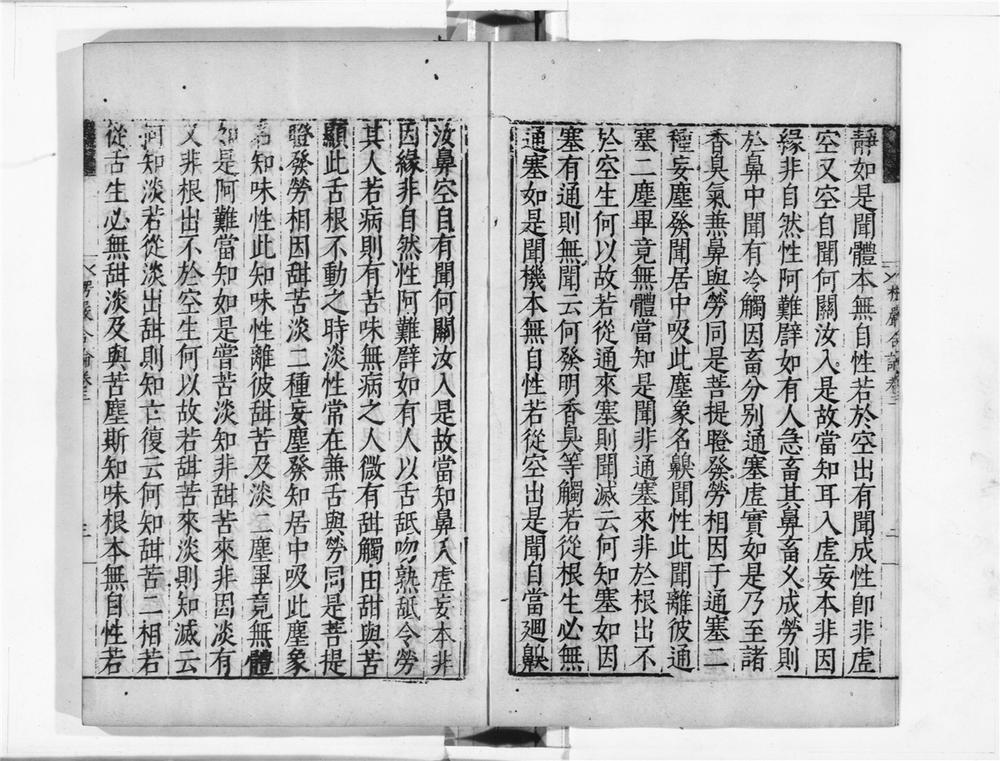 靜如是聞體本無自性若於空出有聞成性卽非虛
空又空自聞何關汝入是故當知耳入虛妄本非因
緣非自然性阿難譬如有人急畜其鼻畜久成勞則
於鼻中聞有冷觸因畜分別通塞虛實如是乃至諸
香臭氣無鼻與勞同是菩提瞪發勞相因于通塞二
種妄塵發聞居中吸此塵象名齅聞性此聞離彼通
塞二塵畢竟無體當知是聞非通塞來非於根出不
於空生何以故若從通來塞則聞滅云何知塞如因
塞有通則無聞云何發明香臭等觸若從根生必無
通塞如是聞機本無自性若從空出是聞自當廻齅
楞嚴合論卷三
二
汝鼻空自有聞何關汝入是故當知鼻入虛妄本非
因緣非自然性阿難譬如有人以舌舐吻熟舐令勞
其人若病則有苦味無病之人微有甜觸由甜與苦
顯此舌根不動之時淡性常在兼舌與勞同是菩提
瞪發勞相因甜苦淡二種妄塵發知居中吸此塵象
名知味性此知味性離彼甜苦及淡二塵畢竟無體
如是阿難當知如是嘗苦淡知非甜苦來非因淡有
又非根出不於空生何以故若甜苦來淡則知滅云
何知淡若從淡出甜則知亡復云何知甜苦二相若
從舌生必無甜淡及與苦塵斯知味根本無自性若
楞嚴合論卷三
三